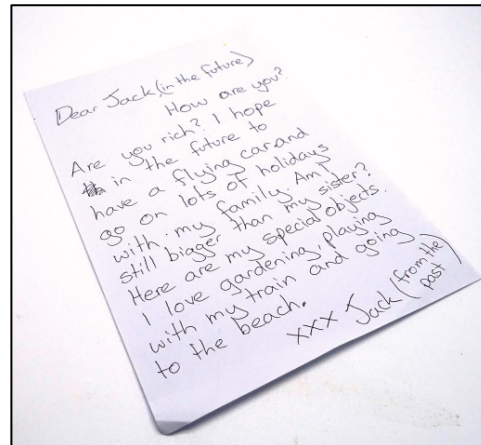 Dear Jack, (in the future)
How are you?
Are you rich? I hope
in the future to
have a flying car and
go on lots of holidays
with my family. Am I
still bigger than my sister?
Here are my special objects.
I love gardening, playing
with my train and going
to the beach.
xxx Jack (from the past)